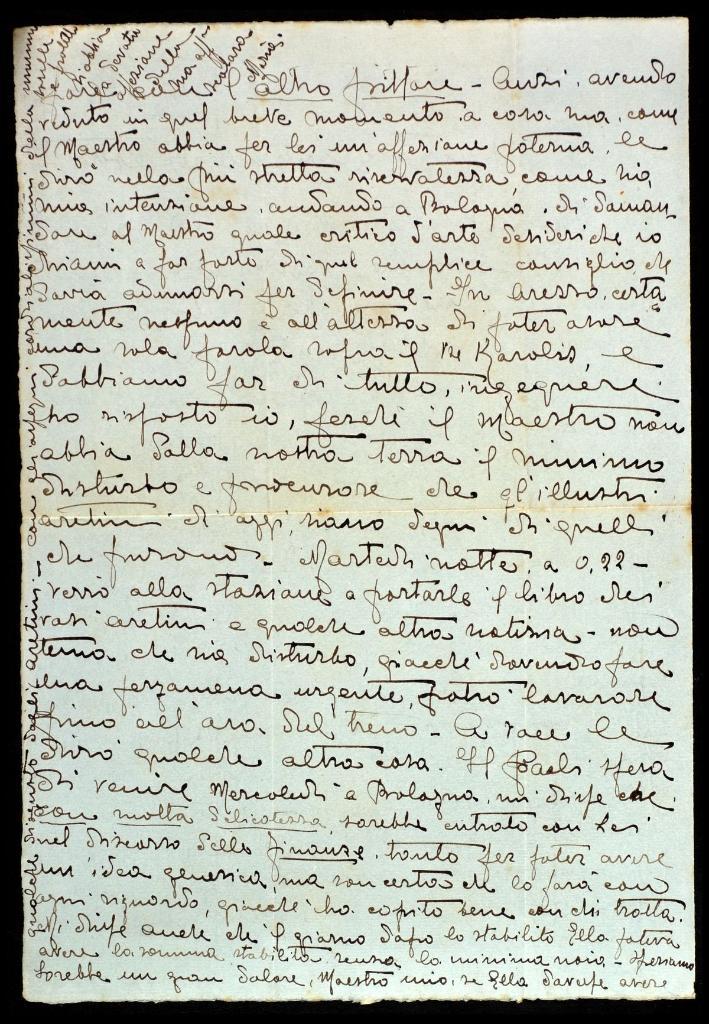 altro pittore – Anzi, avendo
veduto in quel breve momento a casa sua, come
il Maestro abbia per lei un'affezione paterna, le
dirò nella più stretta riservatezza, come sia
mia intenzione, andando a Bologna, di doman=
dare al Maestro quale critico d'arte desideri che io
chiami a far parte di quel semplice consiglio, che
dovrà adunarsi per definire – In Arezzo, certa=
mente nessuno è all'altezza di poter avere
una sola parola sopra il De Karolis, e
dobbiamo far di tutto, ingegnere
ho risposto io, perché il Maestro non
abbia dalla nostra terra il minimo
disturbo e procurare che gl'illustri
aretini di oggi, siano degni di quelli
che furono – Martedì notte, a 0,22 –
verrò alla stazione a portarle il libro dei
vasi aretini e qualche altra notizia – non
tema che sia disturbo, giacché dovendo fare
una urgente, potrò lavorare
fino all'ora del treno – A voce le
dirò qualche altra cosa. Il Paoli spera
di venire Mercoledì a Bologna, mi disse che
con molta delicatezza, sarebbe entrato con Lei
nel discorso delle finanze, tanto per poter avere
un'idea generica, ma son certa che lo farà con
ogni riguardo, giacché ha capito bene con chi tratta.
Mi disse anche che il giorno dopo lo stabilito Ella poteva
avere la somma stabilita senza la minima noia – Speriamo
Sarebbe un gran dolore, Maestro mio, se Ella dovesse avere
qualche disgusto dagli aretini – con gli ossequi cordialissimi dalla mamma